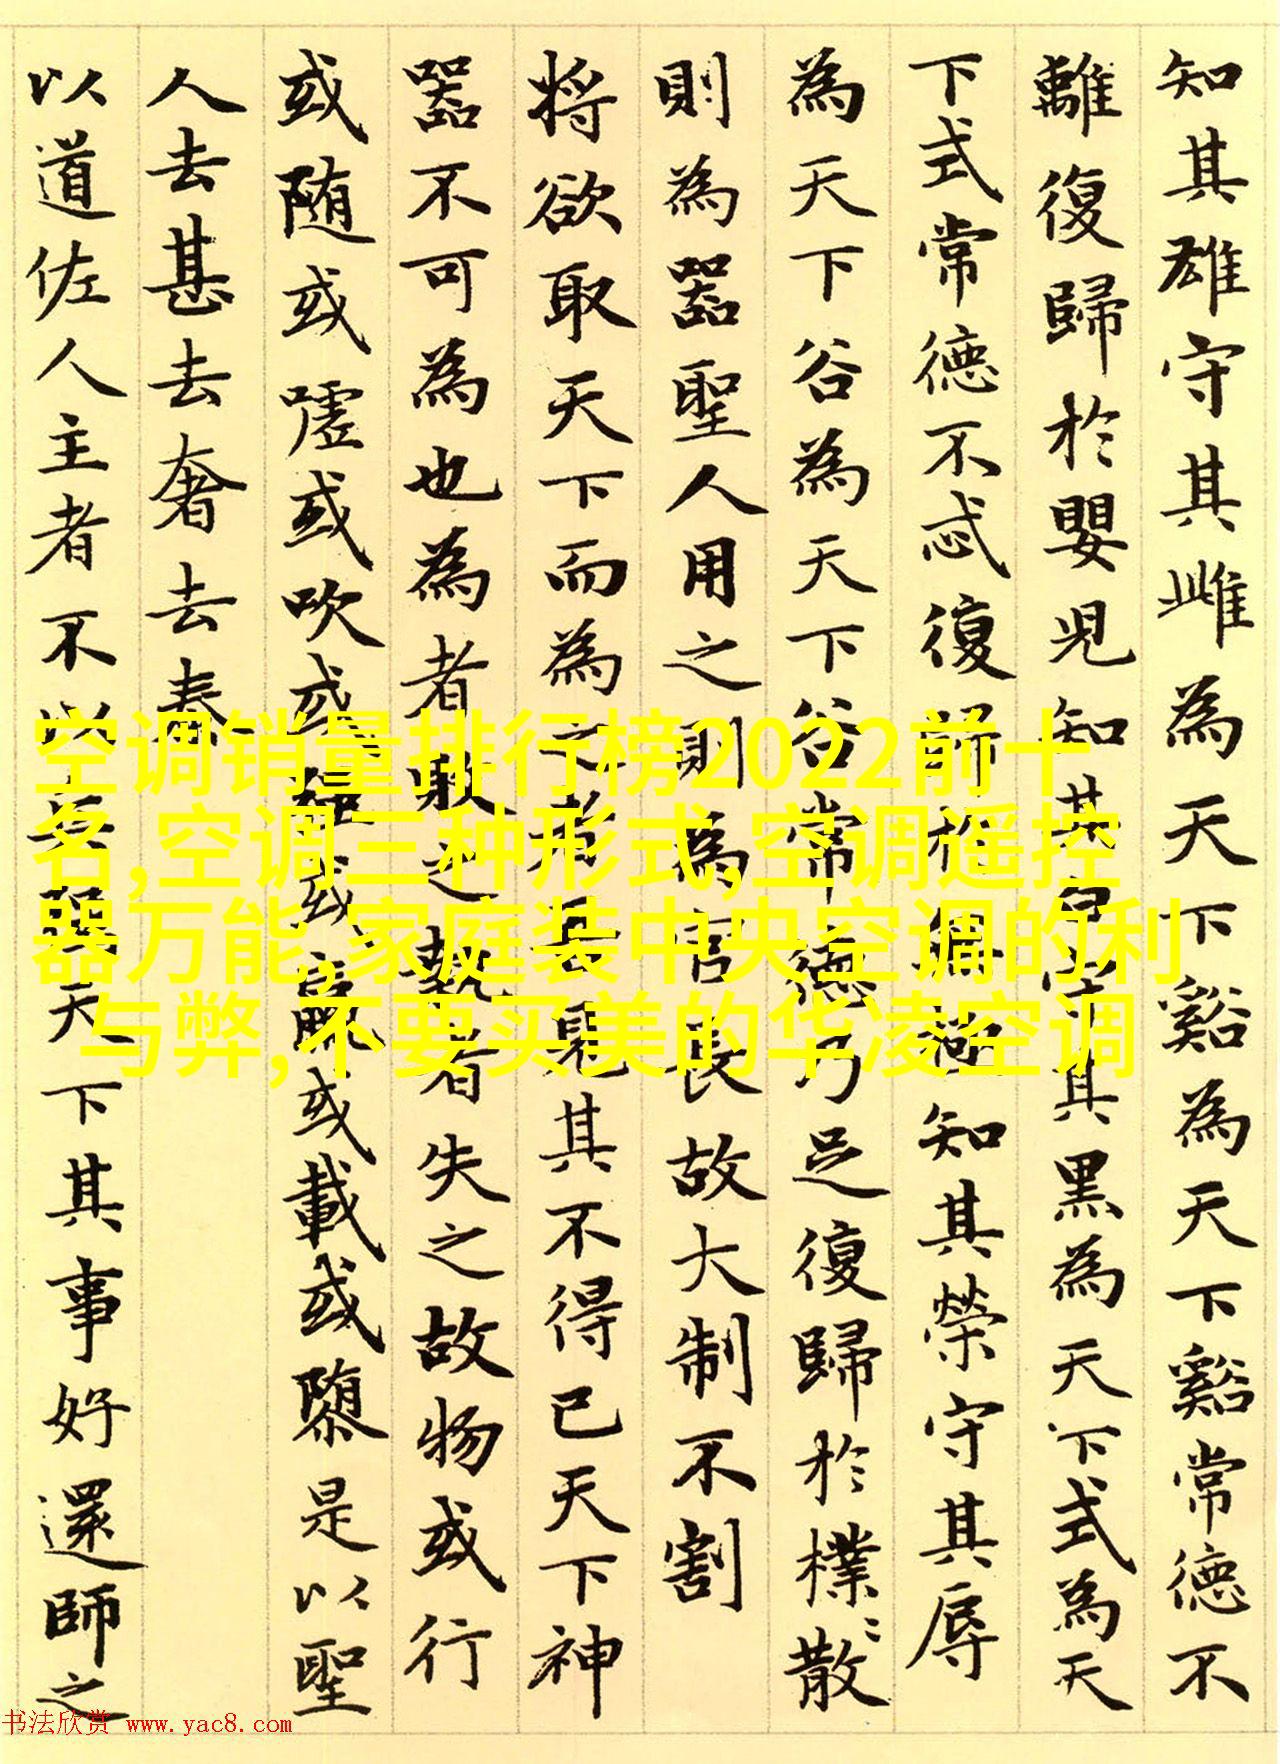 知其雄守其雌為天下谿為天下谿常德不
離復歸於嬰兒知其白守其黑為天下式為天
下式常德不忒復歸於無極知其榮守其辱
為天下谷為天下谷常德乃足復歸於樸樸散
則為器聖人用之則為官長故大制不割
將欲取天下而為之者吾見其不得已天下神
器不可為也為者敗之執者失之故物或行
或随或噓或吹或強或羸或載或隳是以聖
人去甚去奢去泰
以道佐人主者不以兵強天下其事好還師之
空调销量排行榜2022前十
名,空调三种形式,空调遥控
器万能,家庭装中央空调的利
与弊,不要买美的华凌空调
书法欣赏 www.yac8.com